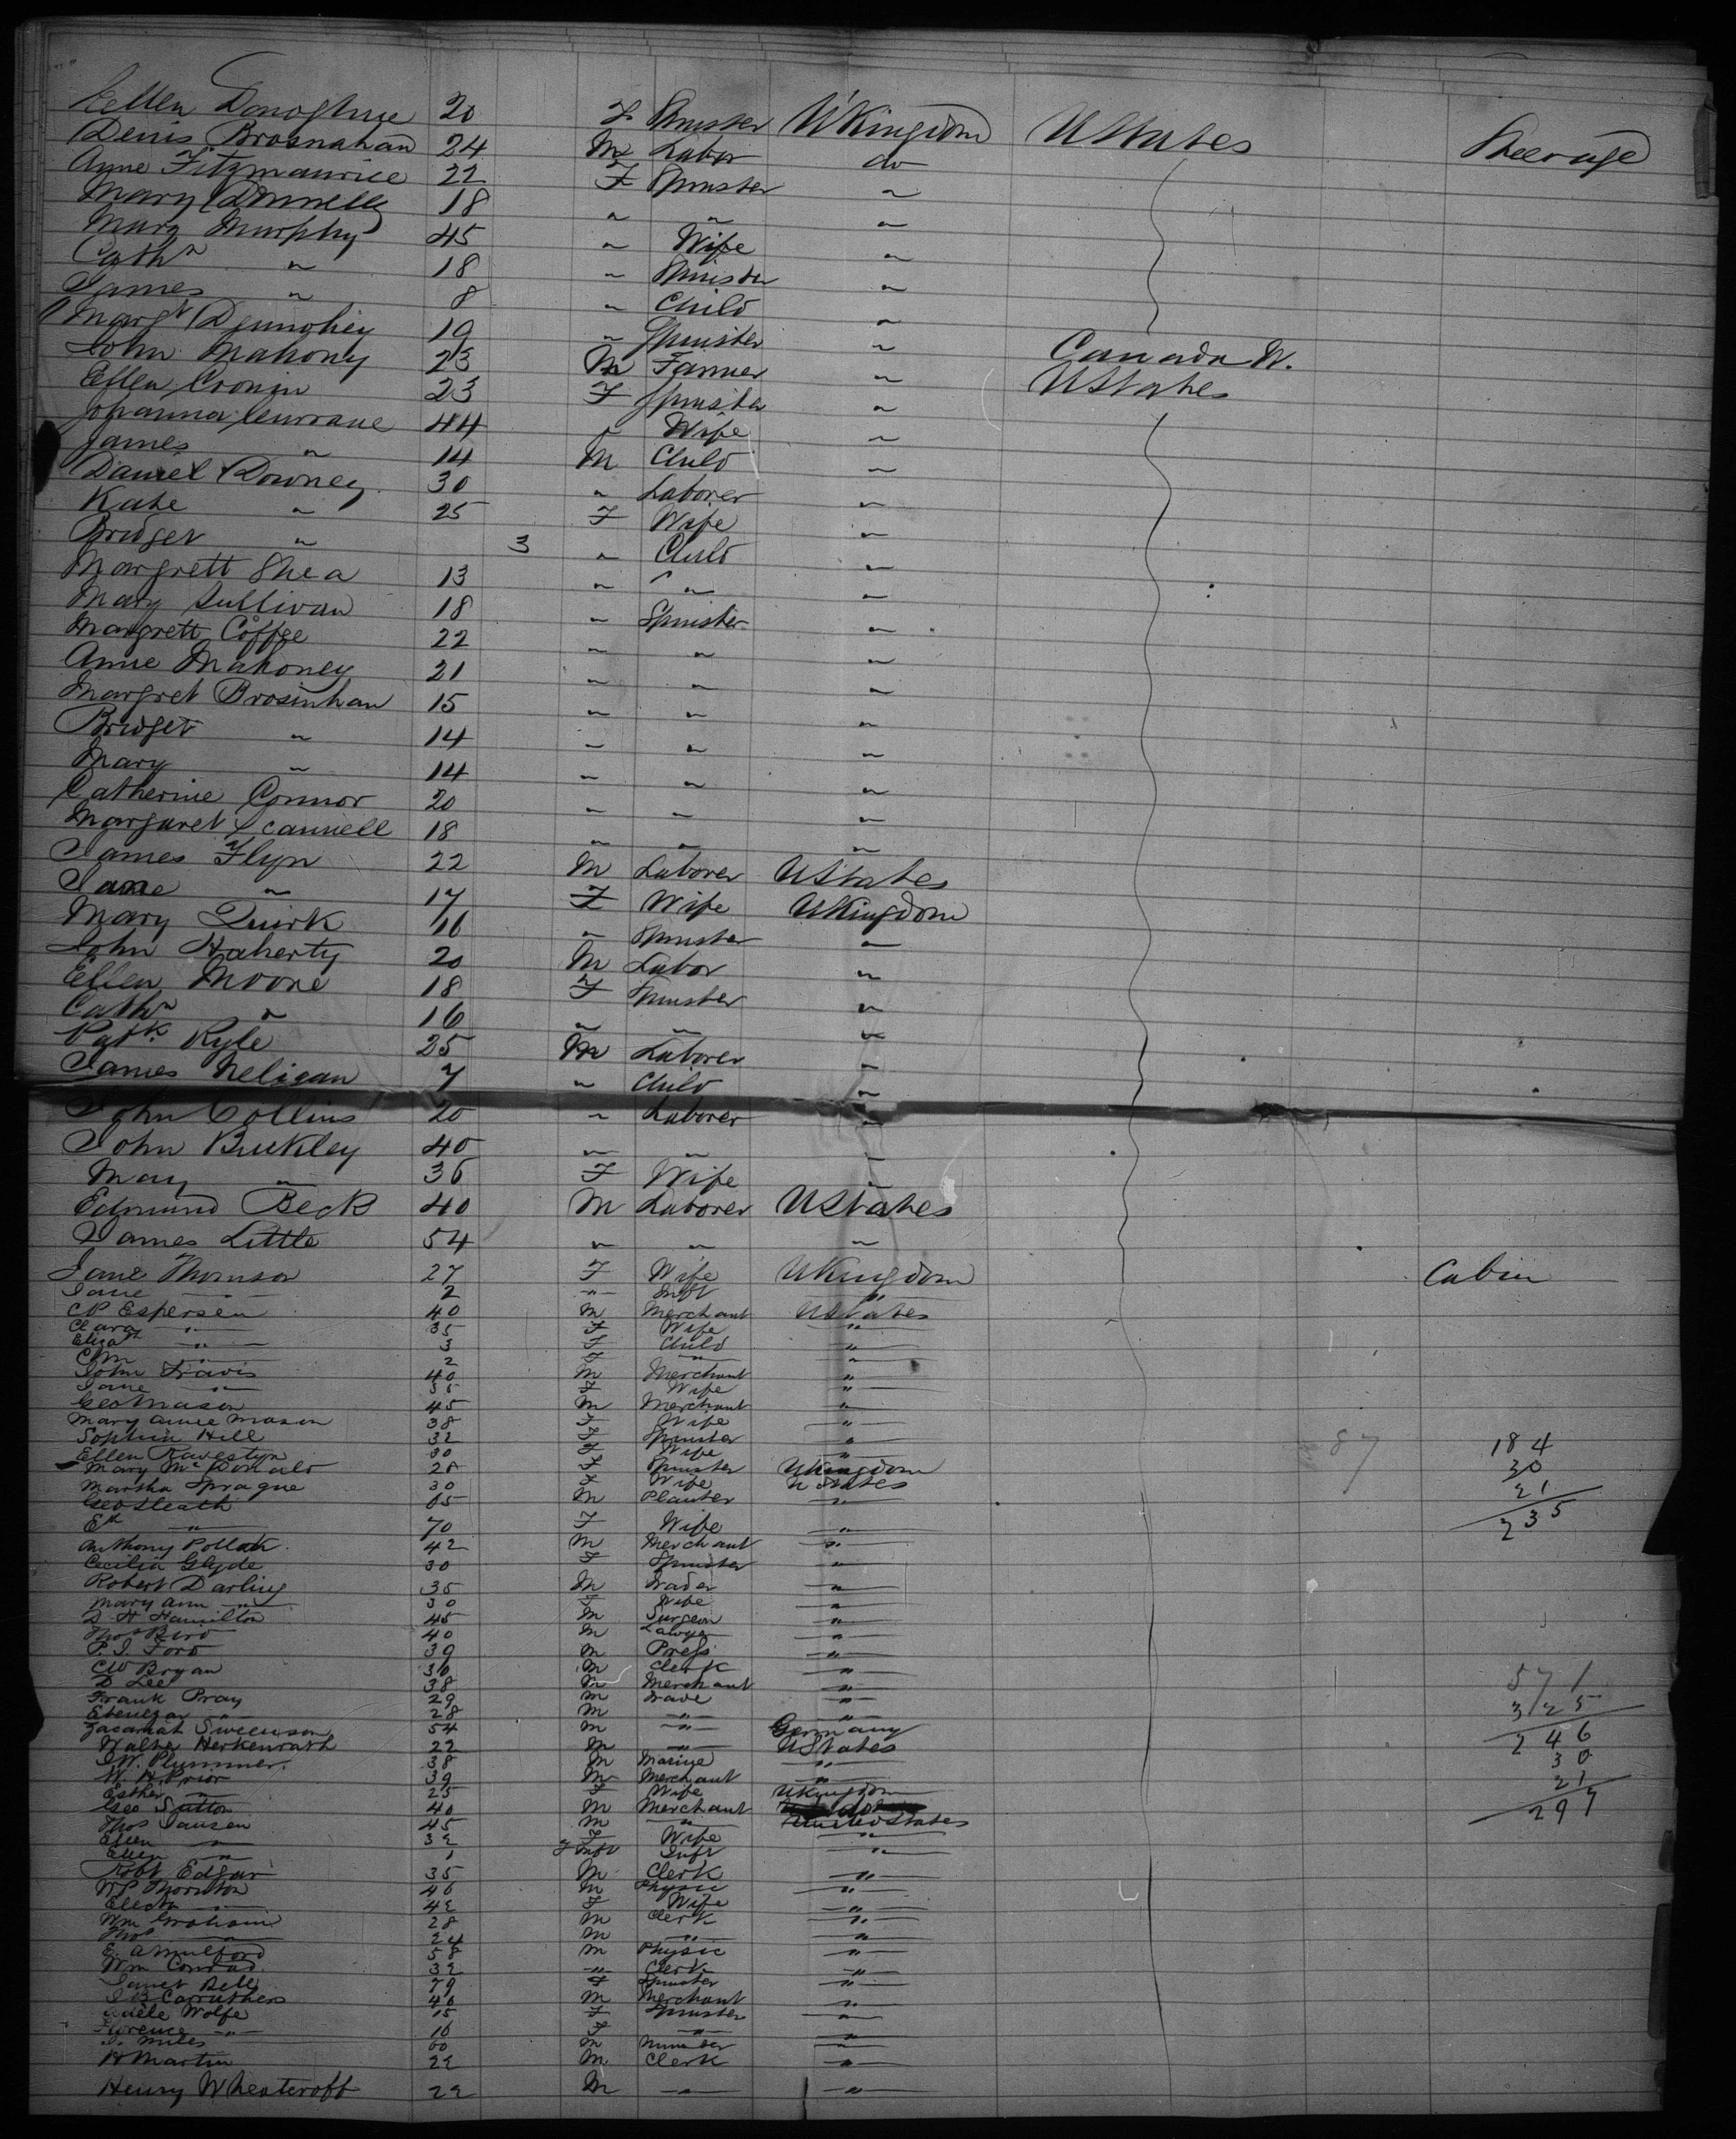 Ellen Donoghue 20 F Spinster UKingdom UStates Steerage
Denis Brosnahan 24 M Labor do
Anne Fitzmaurice 22 F Spinster "
Mary Donnelly 18 " " "
Mary Murphy 45 " Wife "
Cathn " 18 " Spinster "
James " 8 " Child "
Margt Dennohey 19 " Spinster "
John Mahony 23 M Farmer " Canada W.
Ellen Cronin 23 F Spinster " UStates
Johanna Currane 44 " Wife "
James " 14 M Child "
Daniel Downey 30 " Laborer "
Kate " 25 F Wife "
Bridget " 3 " Child "
Margrett Shea 13 " " "
Mary Sullivan 18 " Spinster "
Margrett Coffee 22 " " "
Anne Mahoney 21 " " "
Margret Brosinhan 15 " " "
Bridget " 14 " " "
Mary " 14 " " "
Catherine Connor 20 " " "
Margaret Scannell 18 " " "
James Flyn 22 M Laborer UStates
Jane " 17 F Wife UKingdom
Mary Quirk 16 " Spinster "
John Haherty 20 M Labor "
Ellen Moore 18 F Spinster "
Cathn " 16 " " "
Patk. Kyle 25 M Laborer "
James Neligan 7 " Child "
John Collins 20 " Laborer "
John Buckley 40 " " "
Mary " 36 F Wife "
Edmund Beck 40 M Laborer UStates
James Little 54 " " "
Jane Thornson 27 F Wife UKingdom Cabin
Jane " 2 " Inft "
CP Espersen 40 M Merchant UStates
Clara " 35 F Wife "
Elizath " 3 F Child "
" 2 F " "
John Travis 40 M Merchant "
Jane " 35 F Wife "
Geo Mason 45 M Merchant "
Mary Anne Mason 38 F Wife "
Sophia Hill 32 F Spinster "
Ellen Ravestyn 30 F Wife " 87 184
Mary McDonald 28 F Spinster UKingdom 30
Martha Sprague 30 F Wife UStates 21
Geo Heath 65 M Planter " 235
Eth " 70 F Wife "
Anthony Pollok 42 M Merchant "
Cecilia Glyde 30 F Spinster "
Robert Darling 35 M Trader "
Mary Ann " 30 F Wife "
D. H Hamilton 45 M Surgeon "
Thos Bird 40 M Lawyer "
P. J. Ford 39 M Profs "
CW Bryan 36 M Clerk "
D Lee 38 M Merchant " 571
Frank Pray 29 M Trade " 325
Ebenezar " 28 M " " 246
Swenson 54 M " Germany 30
Walter Herkenrath 22 M " UStates 21
J.W. Plummer 38 M Marine " 297
W. H. Prior 39 M Merchant "
Esther " 25 F Wife UKingdom
Geo Sutton 40 M Merchant United States
Thos Jansen 45 M " "
Ellen " 32 F Wife "
Ellen " 1 F Inft Inft "
Robt Edgar 35 M Clerk "
WP Thornton 46 M Physic "
Electa " 42 F Wife "
Wm Graham 28 M Clerk "
Thos " 24 M " "
E. A Mulford 58 M Physic "
Wm Conrad 32 " Clerk "
Janet Bell 79 F Spinster "
J B Carruthers 40 M Merchant "
Adele Wolfe 15 F Spinster "
Florence " 16 F " "
J. Miles 60 M Minister "
H Martin 22 M Clerk "
Henry Wheatcroft 22 M " "